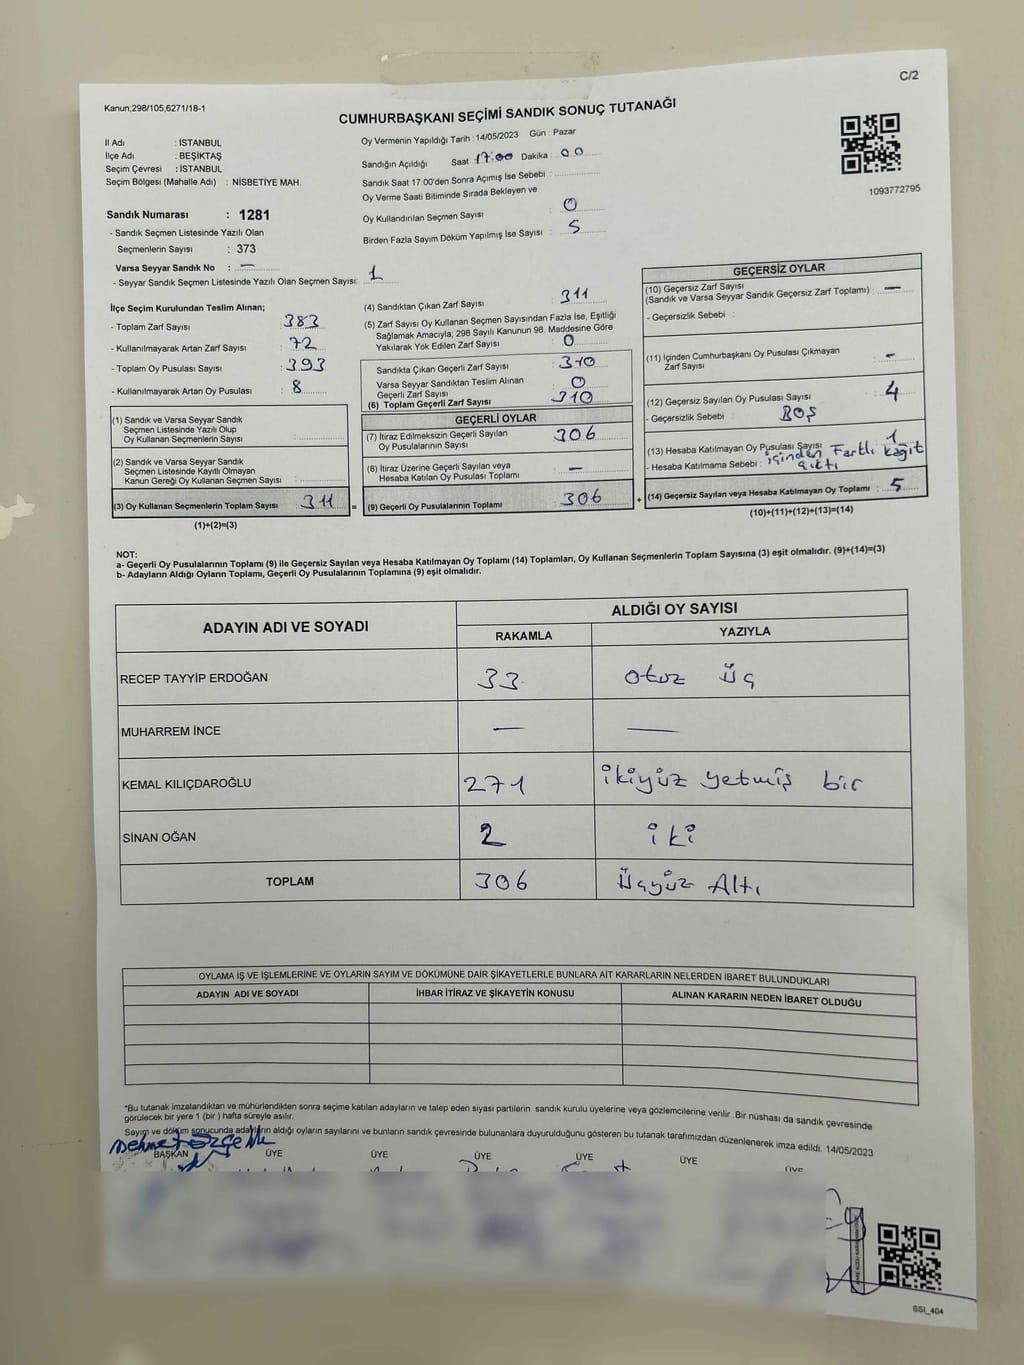 C/2
Kanun;298/105,6271/18-1
CUMHURBAŞKANI SEÇİMİ SANDIK SONUÇ TUTANAĞI
İl Adı : İSTANBUL
İlçe Adı : BEŞİKTAŞ
Seçim Çevresi : İSTANBUL
Seçim Bölgesi (Mahalle Adı) : NİSBETİYE MAH.
Oy Vermenin Yapıldığı Tarih : 14/05/2023 Gün : Pazar
Sandığın Açıldığı Saat : 17:00 Dakika : 00
Sandık Saat 17.00'den Sonra Açımış İse Sebebi :
Oy Verme Saati Bitiminde Sırada Bekleyen ve
Oy Kullandırılan Seçmen Sayısı : 0
Birden Fazla Sayım Döküm Yapılmış İse Sayısı : 5
1093772795
Sandık Numarası : 1281
- Sandık Seçmen Listesinde Yazılı Olan
Seçmenlerin Sayısı : 373
Varsa Seyyar Sandık No : —
- Seyyar Sandık Seçmen Listesinde Yazılı Olan Seçmen Sayısı: 1
İlçe Seçim Kurulundan Teslim Alınan;
- Toplam Zarf Sayısı : 383
- Kullanılmayarak Artan Zarf Sayısı : 72
- Toplam Oy Pusulası Sayısı : 393
- Kullanılmayarak Artan Oy Pusulası : 8
(1) Sandık ve Varsa Seyyar Sandık
Seçmen Listesinde Yazılı Olup
Oy Kullanan Seçmenlerin Sayısı :
(2) Sandık ve Varsa Seyyar Sandık
Seçmen Listesinde Kayıtlı Olmayan
Kanun Gereği Oy Kullanan Seçmen Sayısı :
(3) Oy Kullanan Seçmenlerin Toplam Sayısı : 311 =
(1)+(2)=(3)
(4) Sandıktan Çıkan Zarf Sayısı : 311
(5) Zarf Sayısı Oy Kullanan Seçmen Sayısından Fazla İse, Eşitliği
Sağlamak Amacıyla; 298 Sayılı Kanunun 98. Maddesine Göre
Yakılarak Yok Edilen Zarf Sayısı : 0
Sandıkta Çıkan Geçerli Zarf Sayısı : 310
Varsa Seyyar Sandıktan Teslim Alınan
Geçerli Zarf Sayısı : 0
(6) Toplam Geçerli Zarf Sayısı : 310
GEÇERLİ OYLAR
(7) İtiraz Edilmeksizin Geçerli Sayılan
Oy Pusulasının Sayısı : 306
(8) İtiraz Üzerine Geçerli Sayılan veya
Hesaba Katılan Oy Pusulası Toplamı : —
(9) Geçerli Oy Pusulalarının Toplamı : 306 +
GEÇERSİZ OYLAR
(10) Geçersiz Zarf Sayısı
(Sandık ve Varsa Seyyar Sandık Geçersiz Zarf Toplamı) : —
- Geçersizlik Sebebi :
(11) İçinden Cumhurbaşkanı Oy Pusulası Çıkmayan
Zarf Sayısı : -
(12) Geçersiz Sayılan Oy Pusulası Sayısı : 4
- Geçersizlik Sebebi : BOŞ
(13) Hesaba Katılmayan Oy Pusulası Sayısı : 1
- Hesaba Katılmama Sebebi : içinden Farklı kağıt
çıktı
(14) Geçersiz Sayılan veya Hesaba Katılmayan Oy Toplamı : 5
(10)+(11)+(12)+(13)=(14)
NOT:
a- Geçerli Oy Pusulalarının Toplamı (9) ile Geçersiz Sayılan veya Hesaba Katılmayan Oy Toplamı (14) Toplamları, Oy Kullanan Seçmenlerin Toplam Sayısına (3) eşit olmalıdır. (9)+(14)=(3)
b- Adayların Aldığı Oyların Toplamı, Geçerli Oy Pusulalarının Toplamına (9) eşit olmalıdır.
ADAYIN ADI VE SOYADI
ALDIĞI OY SAYISI
RAKAMLA YAZIYLA
RECEP TAYYİP ERDOĞAN 33 otuz üç
MUHARREM İNCE — —
KEMAL KILIÇDAROĞLU 271 ikiyüz yetmiş bir
SİNAN OĞAN 2 iki
TOPLAM 306 Üçyüz Altı
OYLAMA İŞ VE İŞLEMLERİNE VE OYLARIN SAYIM VE DÖKÜMÜNE DAİR ŞİKAYETLERLE BUNLARA AİT KARARLARIN NELERDEN İBARET BULUNDUKLARI
ADAYIN ADI VE SOYADI İHBAR İTİRAZ VE ŞİKAYETİN KONUSU ALINAN KARARIN NEDEN İBARET OLDUĞU
*Bu tutanak imzalandıktan ve mühürlendikten sonra seçime katılan adayların ve talep eden siyasi partilerin sandık kurulu üyelerine veya gözlemcilerine verilir. Bir nüshası da sandık çevresinde
görülecek bir yere 1 (bir ) hafta süreyle asılır.
Sayım ve döküm sonucunda adayların aldığı oyların sayılarını ve bunların sandık çevresinde bulunanlara duyurulduğunu gösteren bu tutanak tarafımızdan düzenlenerek imza edildi. 14/05/2023
BAŞKAN ÜYE ÜYE ÜYE ÜYE ÜYE ÜYE
SSI_404